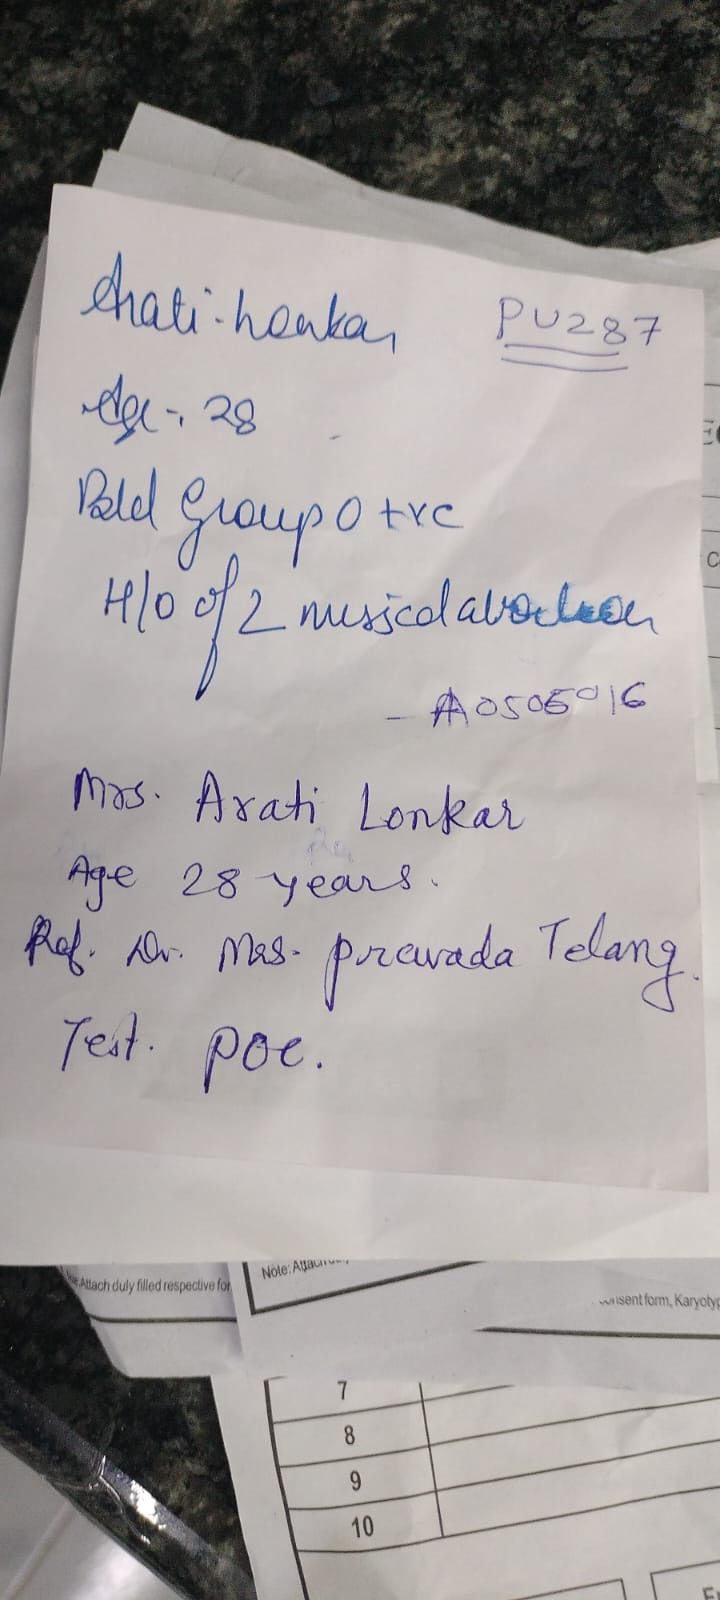 Arati Lonkar PU287
Age -, 28
Bld Group O +ve
H/O of 2 missed abortion
- A0505016
Mrs. Arati Lonkar
Age 28 years.
Ref. Dr. Mrs. Telang.
Test. POC.
Attach duly filled respective for
Note: Attach
consent form, Karyotyp
7
8
9
10